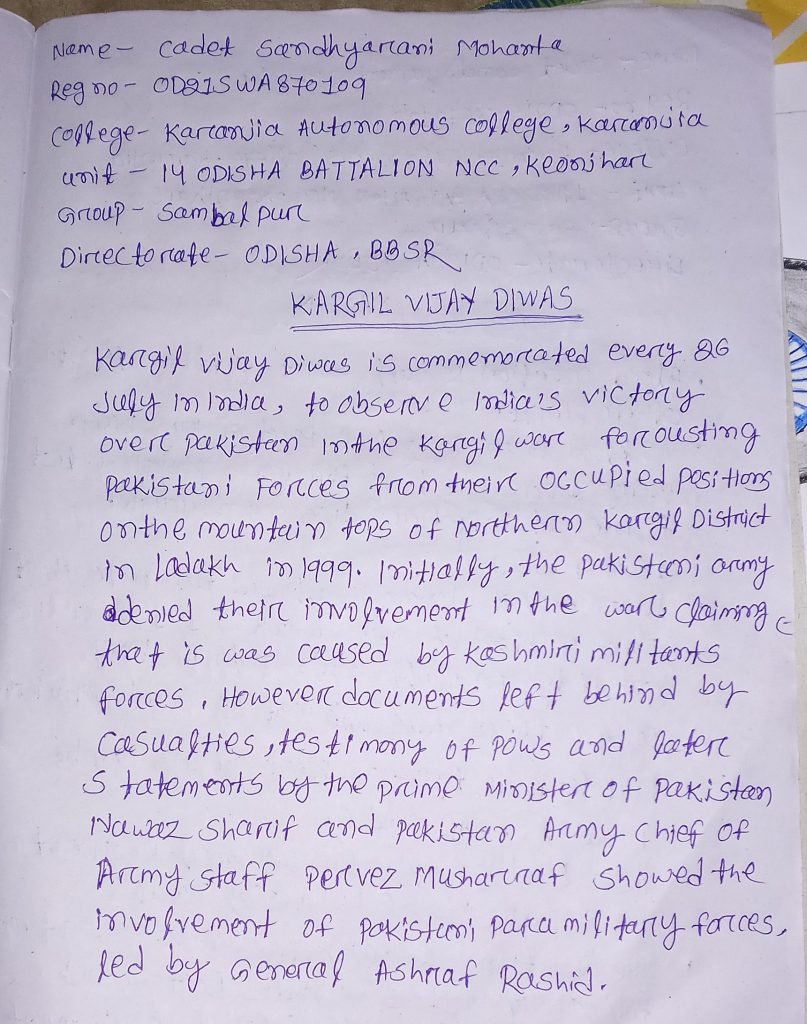 Name - Cadet Sandhyarani Mohanta
Reg no - OD21SWA870109
College - Karanjia Autonomous college, Karanjia
unit - 14 ODISHA BATTALION NCC, Keonjhar
Group - Sambalpur
Directorate - ODISHA, BBSR
KARGIL VIJAY DIWAS
Kargil vijay Diwas is commemorated every 26
July in India, to observe India's victory
over Pakistan in the Kargil war for ousting
Pakistani Forces from their occupied positions
on the mountain tops of northern Kargil District
in Ladakh in 1999. Initially, the Pakistani army
denied their involvement in the war, claiming
that is was caused by Kashmiri militants
forces, However documents left behind by
casualties, testimony of POWs and later
Statements by the prime Minister of Pakistan
Nawaz Sharif and Pakistan Army Chief of
Army staff Pervez Musharraf showed the
involvement of Pakistani paramilitary forces,
led by General Ashraf Rashid.